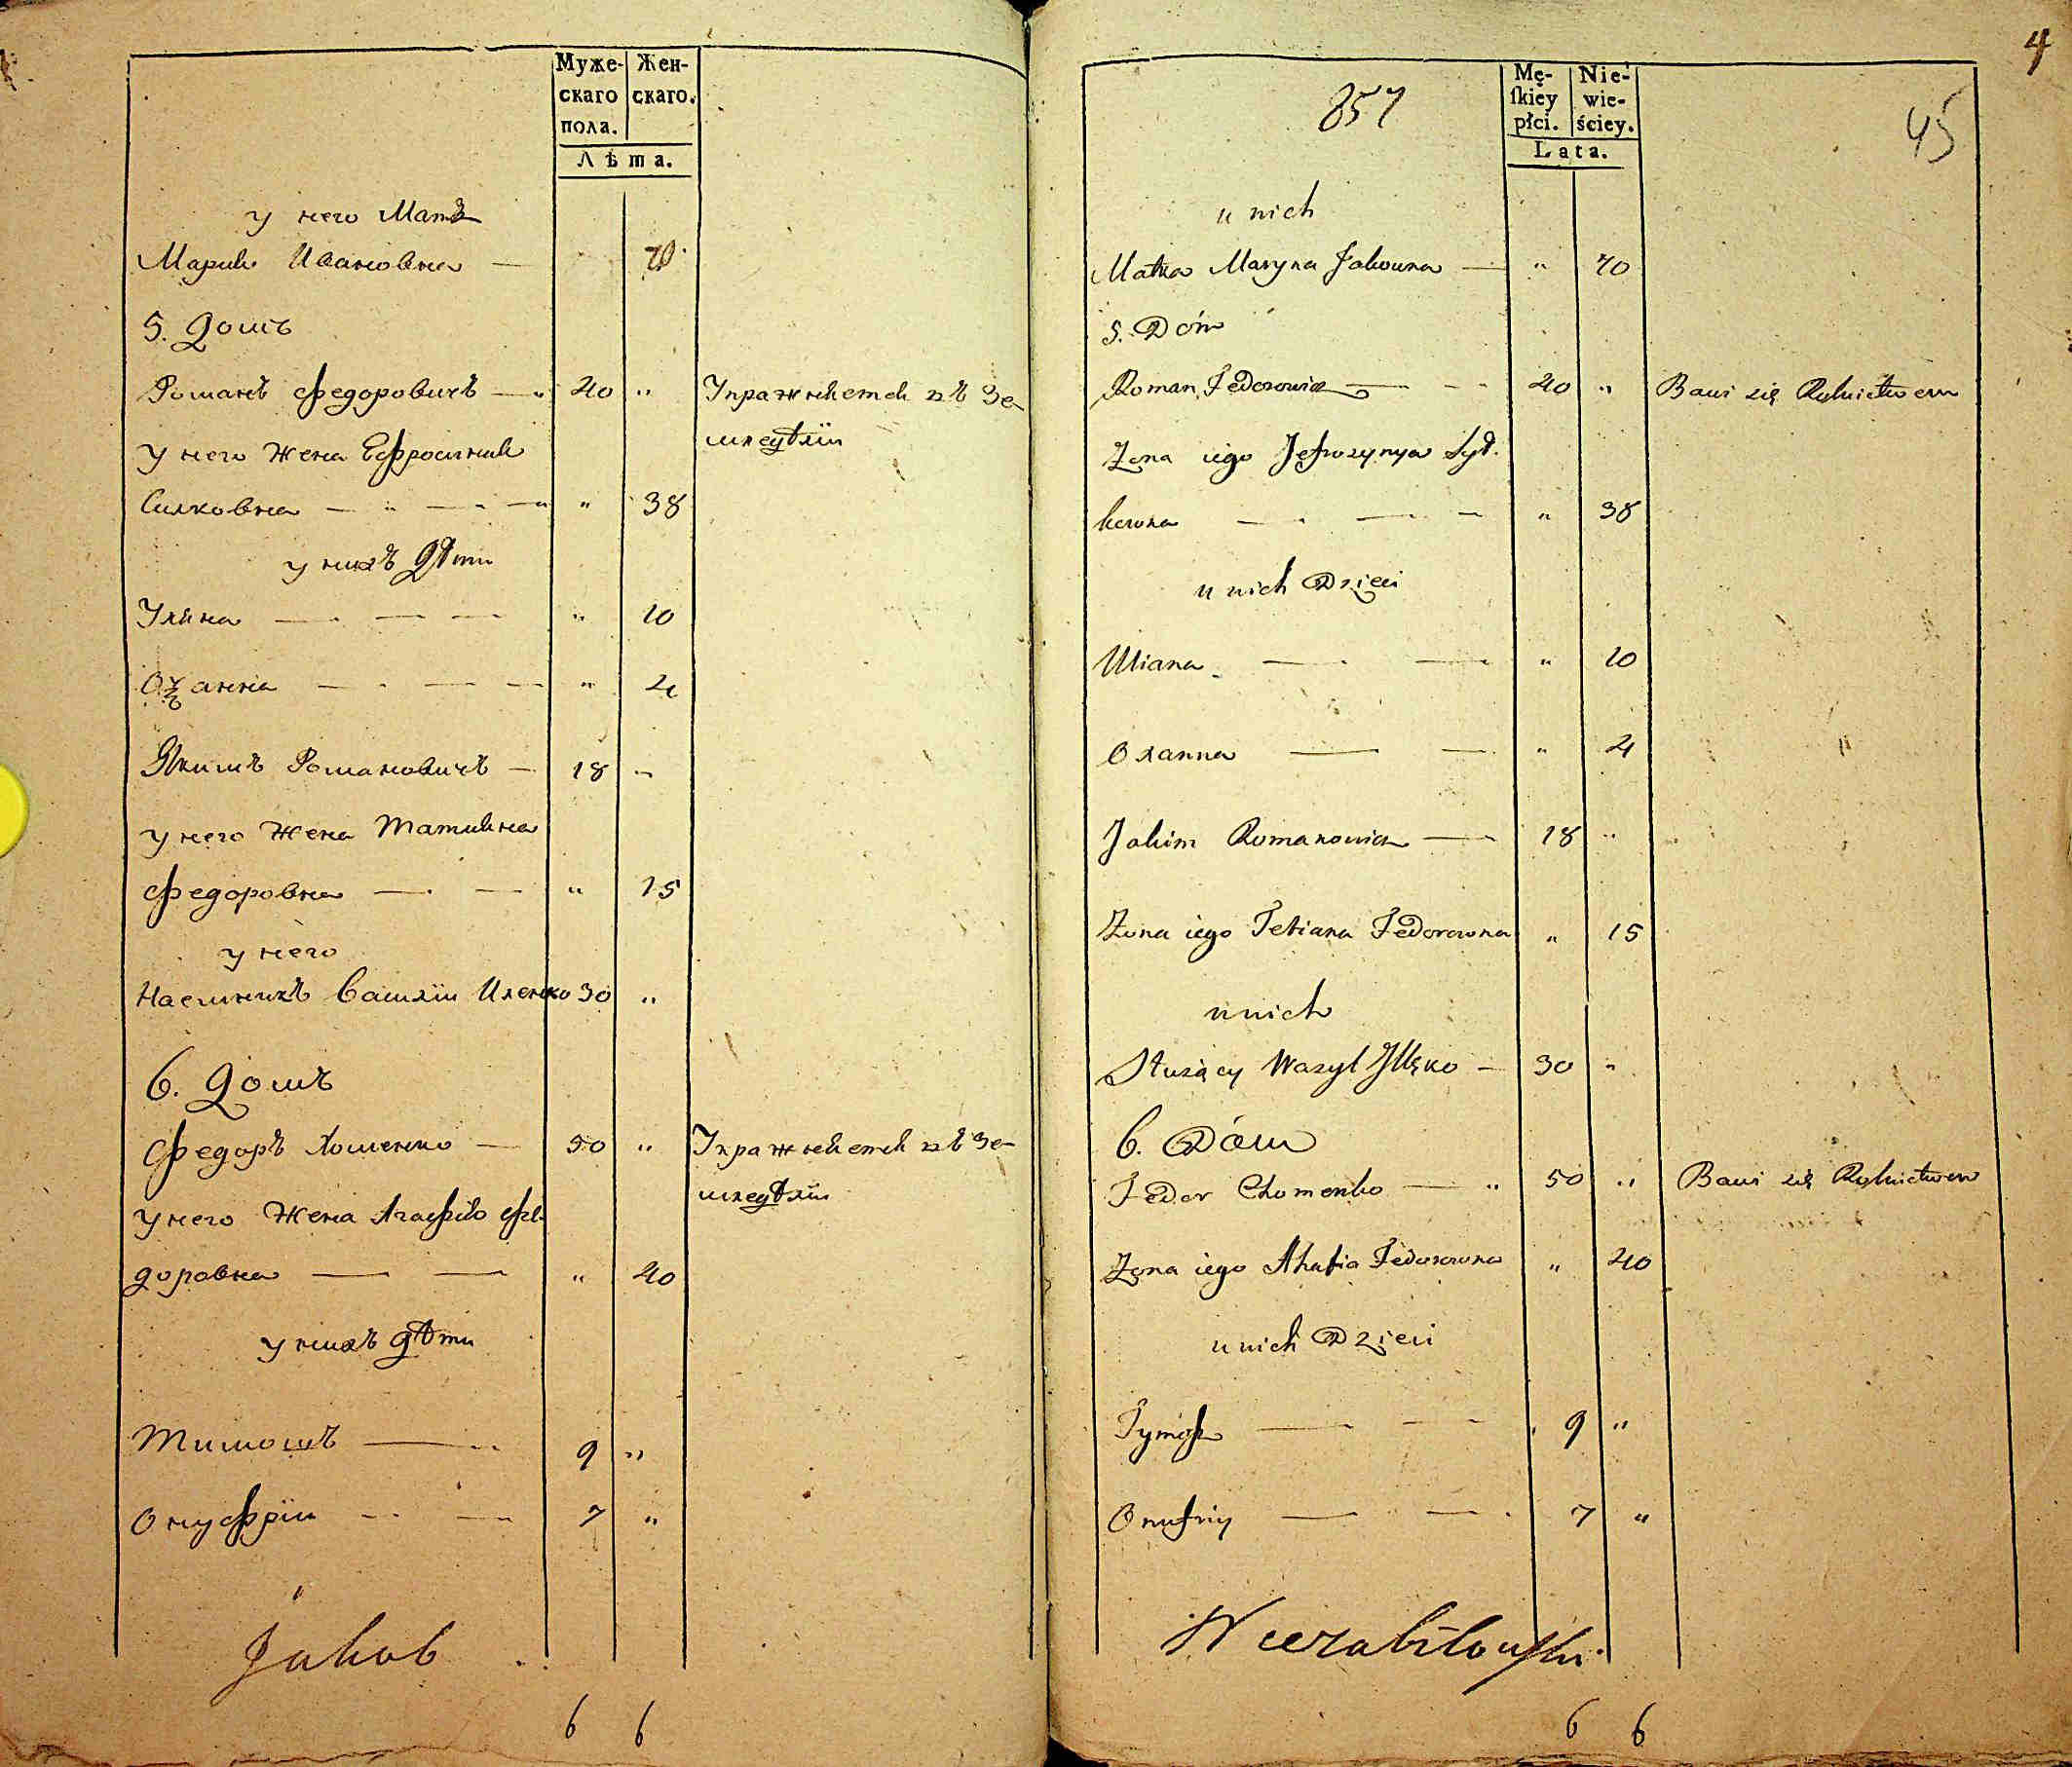 Муже-
скаго
пола.
Жен-
скаго.
Лѣта.
у него Матъ
Мария Ивановна — 70
5. Домъ
Романъ Федоровичъ — „ 40 „ Упражняется въ Зе-
мледѣлiи
у него Жена Ефросиния
Силковна — „ — „ — „ „ 38
у нихъ Дѣти
Уляна — . — — „ 10
Оханна — . — — „ 4
Якимъ Романовичъ — 18 „
у него Жена Татияна
Федоровна — . — „ 15
у него
Наемникъ Василiи Иленко 30 „
6. Домъ
Федоръ Хоменко — 50 „ Упражняется въ Зе-
мледѣлiи
у него Жена Агафiя Фе-
доровна — — „ 40
у нихъ дѣти
Тимошъ — „ 9 „
Онуфрiи — . — 7 „
Jakob
6 6
4
857
Mę-
ſkiey
płci.
Nie-
wie-
ściey.
Lata.
45
u nich
Matka Maryna Jakowna — „ 70
5. Dóm
Roman Fedorowicz — — „ 40 „ Bawi się Rolnictwem
Żona iego Jefrozynya Sył-
kowna — . — . — „ 38
u nich Dzieci
Uliana — . — „ 10
Oxanna — — . „ 4
Jakim Romanowicz — 18 „
Żona iego Tetiana Fedorowna „ 15
u nich
Służący Wasyl Jllęko — 30 „
6. Dóm
Fedor Chomenko — „ 50 „ Bawi się Rolnictwem
Żona iego Ahafia Fedorowna „ 40
u nich Dzieci
Tymosz — — . 9 „
Onufriy — — . 7 „
6 6